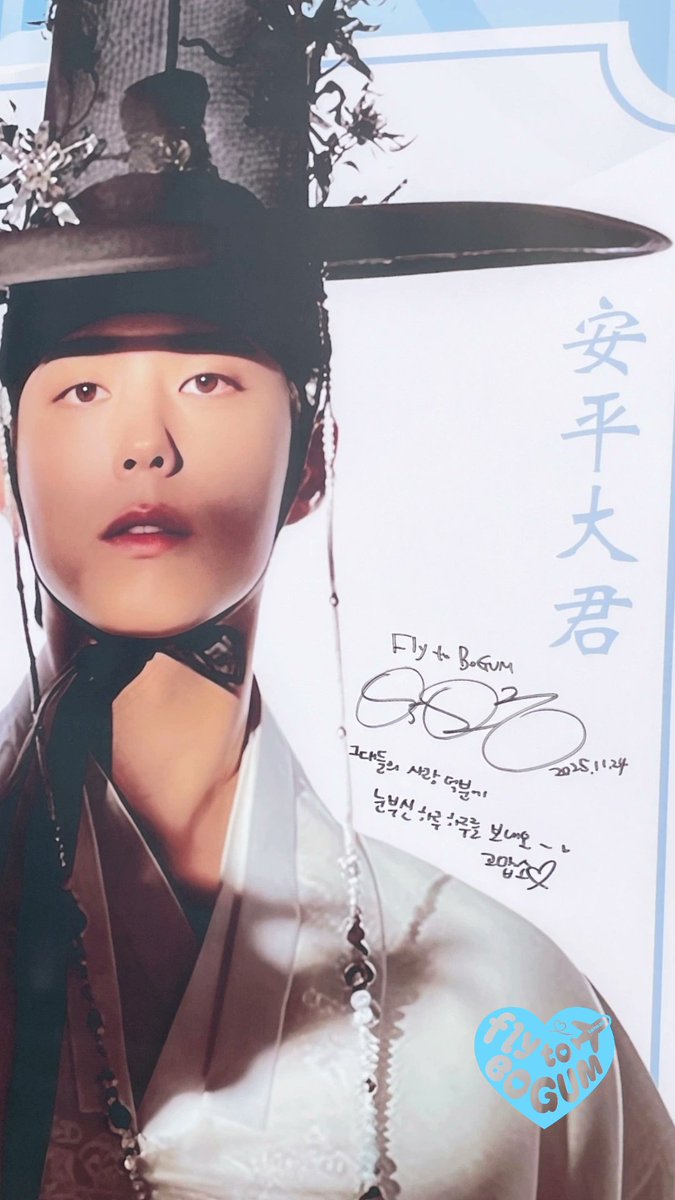 安平大君
Fly to BOGUM
2025.11.24
그대들의 사랑 덕분에
눈부신 하루 하루를 보내오~
고맙소♡
fly to
BOGUM